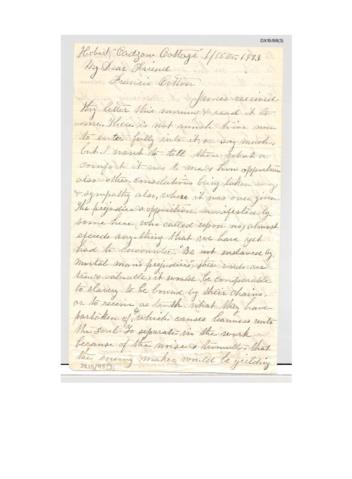 DX19/98(3)
Hobart, "Cadzow Cottage" 1/12th 1883
My Dear Friend
Francis Cotton
James received
thy letter this morning & read it to
me. There is not much time now
to enter fully into it, or say much,
but I want to tell thee what a
comfort it was to me,
also other consolations being taken away
& sympathy also, where it was once given
The prejudice & opposition manifested by
some here, who called upon us, almost
exceeds any thing that we have yet
had to encounter. Be not enslaved by
mortal man's prejudices,
it would be comparable
to slavery to be bound by their chains,
or to receive as truth what they have
partaken of, which causes leanness unto
the soul. To separate in the work
because of the noise & tumult that
the enemy makes would be yielding
DX19/98(3)